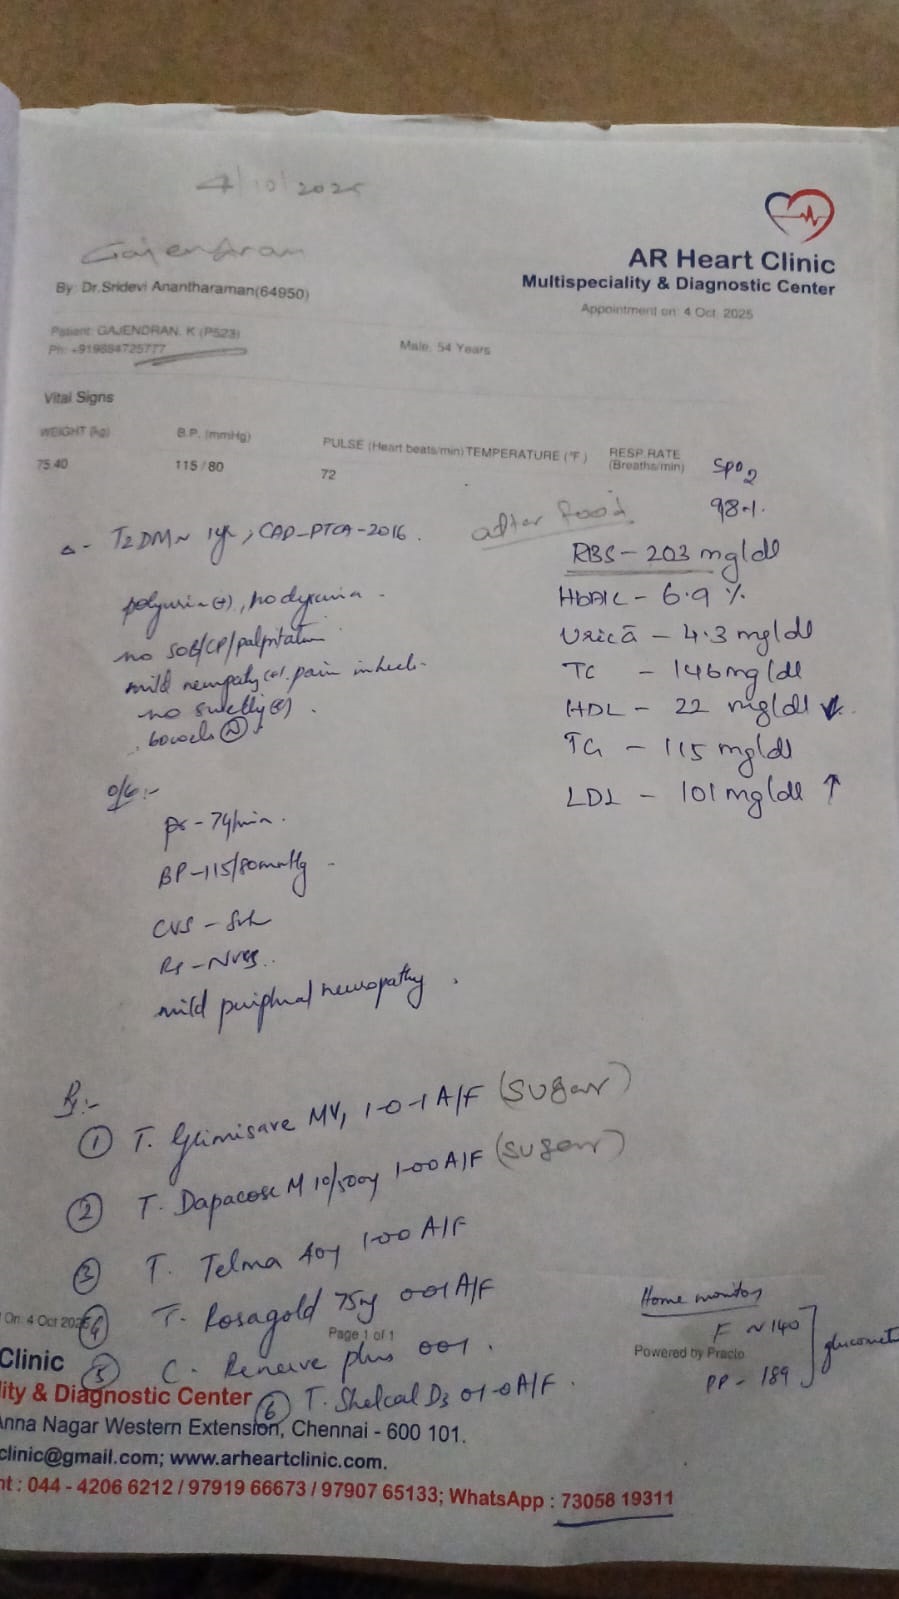 4/10/2025
Gajendran
AR Heart Clinic
By: Dr.Sridevi Anantharaman(64950)
Multispeciality & Diagnostic Center
Appointment on: 4 Oct, 2025
Patient: GAJENDRAN. K (P523)
Ph: +919884725777
Male, 54 Years
Vital Signs
WEIGHT (kg) B.P. (mmHg) PULSE (Heart beats/min) TEMPERATURE (°F) RESP.RATE (Breaths/min) SpO2
75.40 115 / 80 72 - 98%
after food
Δ - T2DM ~ 1yr, CAD-PTCA-2016.
RBS - 203 mg/dl
HbA1C - 6.9 %
polyuria (+), no dysuria -
Uric a - 4.3 mg/dl
no SOB/CP/palpitation
TC - 146 mg/dl
mild neuropathy (+). pain in heel-
HDL - 22 mg/dl ↓.
no
bowels (N).
TG - 115 mg/dl
LDL - 101 mg/dl ↑
o/e:-
pr - 74/min.
BP - 115/80mmHg
CVS -
RS - NVBS.
mild peripheral neuropathy.
Rx:-
① T. Glimisave MV, 1-0-1 A/F (sugar)
② T. Dapacose M 10/500mg 1-00 A/F (sugar)
③ T. Telma 40mg 1-00 A/F
④ T. Rosagold 75mg 0-01 A/F
Home monitor
F ~ 140
PP - 189
glucomet
On: 4 Oct 2025
Page 1 of 1
Powered by Practo
⑤ C. plus 001.
Clinic
⑥ T. Shelcal D3 01-0 A/F.
lity & Diagnostic Center
Anna Nagar Western Extension, Chennai - 600 101.
clinic@gmail.com; www.arheartclinic.com.
nt : 044 - 4206 6212 / 97919 66673 / 97907 65133; WhatsApp : 73058 19311